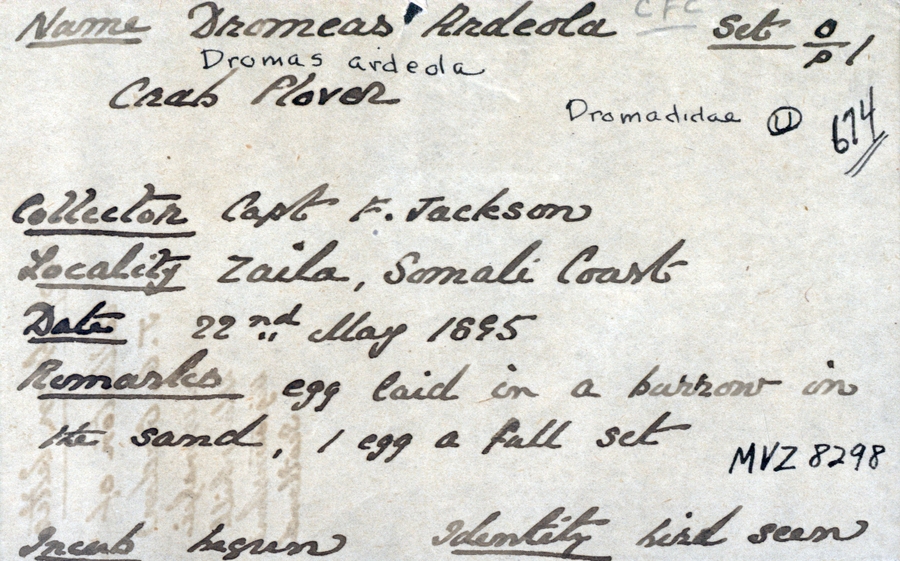 CFC
Name Dromeas Ardeola Set 0/p 1
Dromas ardeola
Crab Plover
Dromadidae U 674
Collector Capt F. Jackson
Locality Zaila, Somali Coast
Date 22nd May 1895
Remarks egg laid in a burrow in
the sand, 1 egg a full set
MVZ 8298
Incub begun Identity bird seen